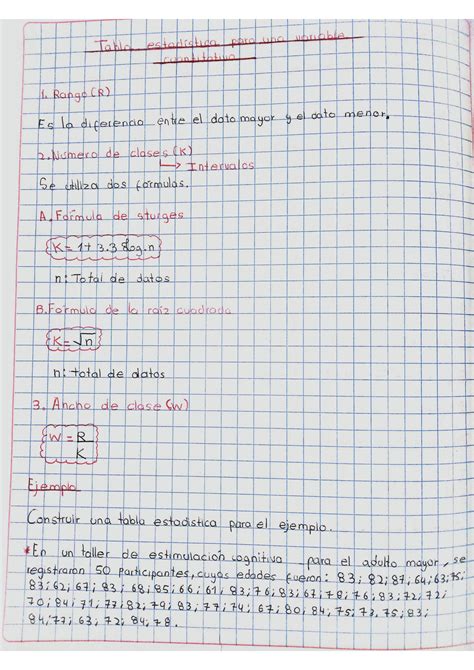 Tabla estadística para una variable
cuantitativa
1. Rango (R)
Es la diferencia entre el dato mayor y el dato menor.
2. Número de clases (K)
→ Intervalos
Se utiliza dos fórmulas.
A. Fórmula de sturges
K = 1 + 3.3 log.n
n: Total de datos
B. Formula de la raíz cuadrada
K = √n
n: total de datos
3. Ancho de clase (W)
W = R
K
Ejemplo
Construir una tabla estadística para el ejemplo.
*En un taller de estimulación cognitiva para el adulto mayor, se
registraron 50 participantes, cuyas edades fueron: 83; 82; 87; 64; 63; 75;
83; 62; 67; 83; 68; 85; 66; 61; 83; 76; 83; 67; 78; 76; 83; 72; 72;
70; 84; 71; 77; 82; 79; 83; 77; 74; 67; 80; 84; 75; 73; 75; 83;
84; 77; 63; 72; 84; 78.